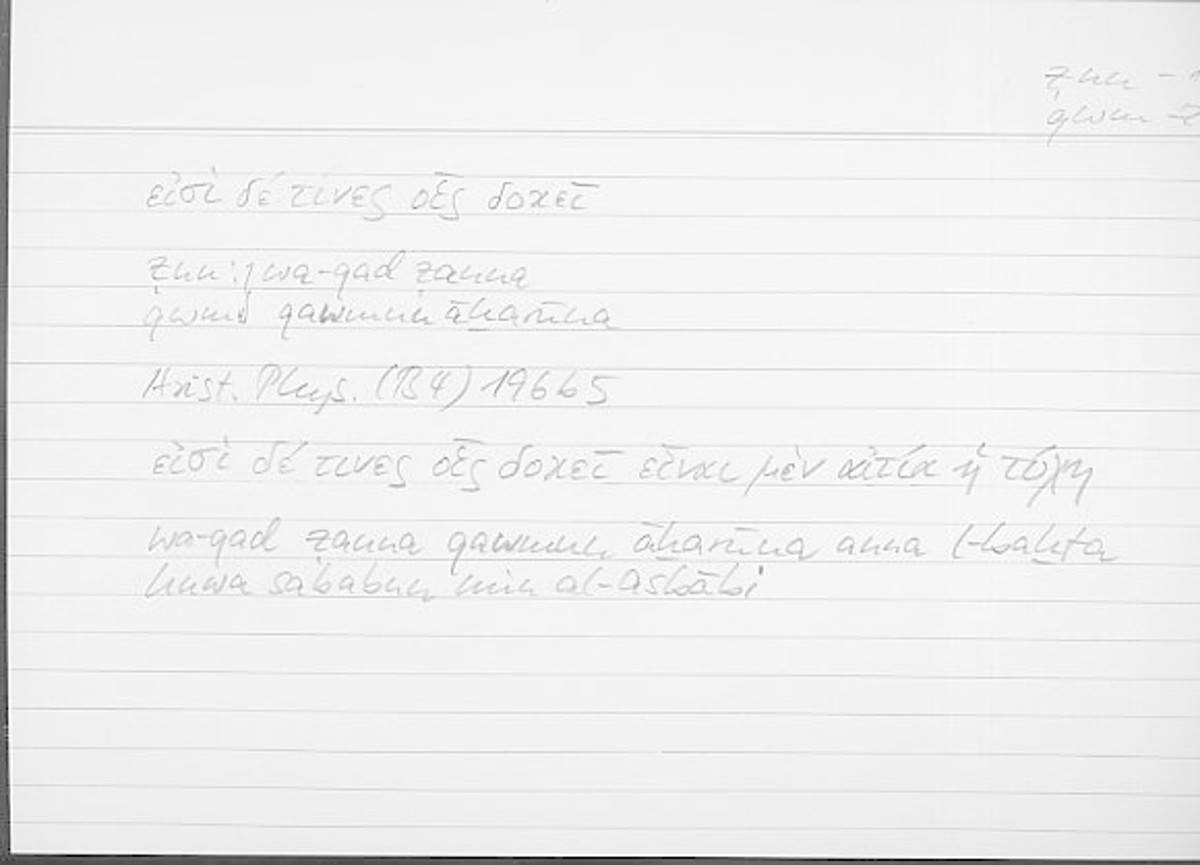 ẓnn - 1
qwm - 2
εἰσὶ δέ τινες οἷς δοκεῖ
ẓnn : wa-qad ẓanna
qwm qawmun āḫarūna
Arist. Phys. (B4) 196b5
εἰσὶ δέ τινες οἷς δοκεῖ εἶναι μὲν αἰτία ἡ τύχη
wa-qad ẓanna qawmun āḫarūna anna l-baḫta
huwa sababun min al-asbābi